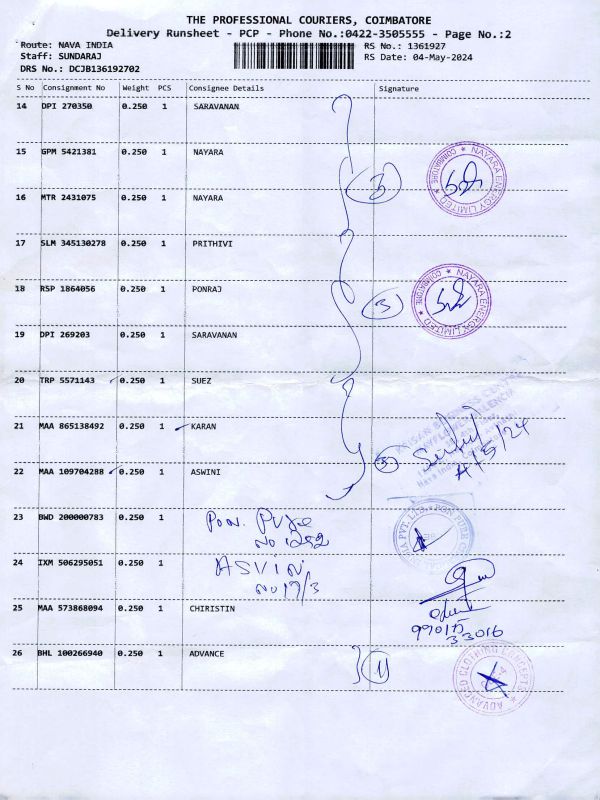 THE PROFESSIONAL COURIERS, COIMBATORE
Delivery Runsheet - PCP - Phone No.:0422-3505555 - Page No.:2
Route: NAVA INDIA
RS No.: 1361927
Staff: SUNDARAJ
RS Date: 04-May-2024
DRS No.: DCJB136192702
S No Consignment No Weight PCS Consignee Details Signature
14 DPI 270350 0.250 1 SARAVANAN
15 GPM 5421381 0.250 1 NAYARA
NAYARA ENERGY LIMITED ★ COIMBATORE ★
3
16 MTR 2431075 0.250 1 NAYARA
17 SLM 345130278 0.250 1 PRITHIVI
18 RSP 1864056 0.250 1 PONRAJ
3
NAYARA ENERGY LIMITED ★ COIMBATORE ★
19 DPI 269203 0.250 1 SARAVANAN
20 TRP 5571143 0.250 1 SUEZ
21 MAA 865138492 0.250 1 KARAN
4/5/24
22 MAA 109704288 0.250 1 ASWINI
23 BWD 200000783 0.250 1 Pon Pure
No 1252
PON PURE
PVT. LTD.
24 IXM 506295051 0.250 1 ASVIN
No 17/3
25 MAA 573868094 0.250 1 CHIRISTIN
99015
33016
26 BHL 100266940 0.250 1 ADVANCE
ADVANCED CLOTHING CONCEPTS